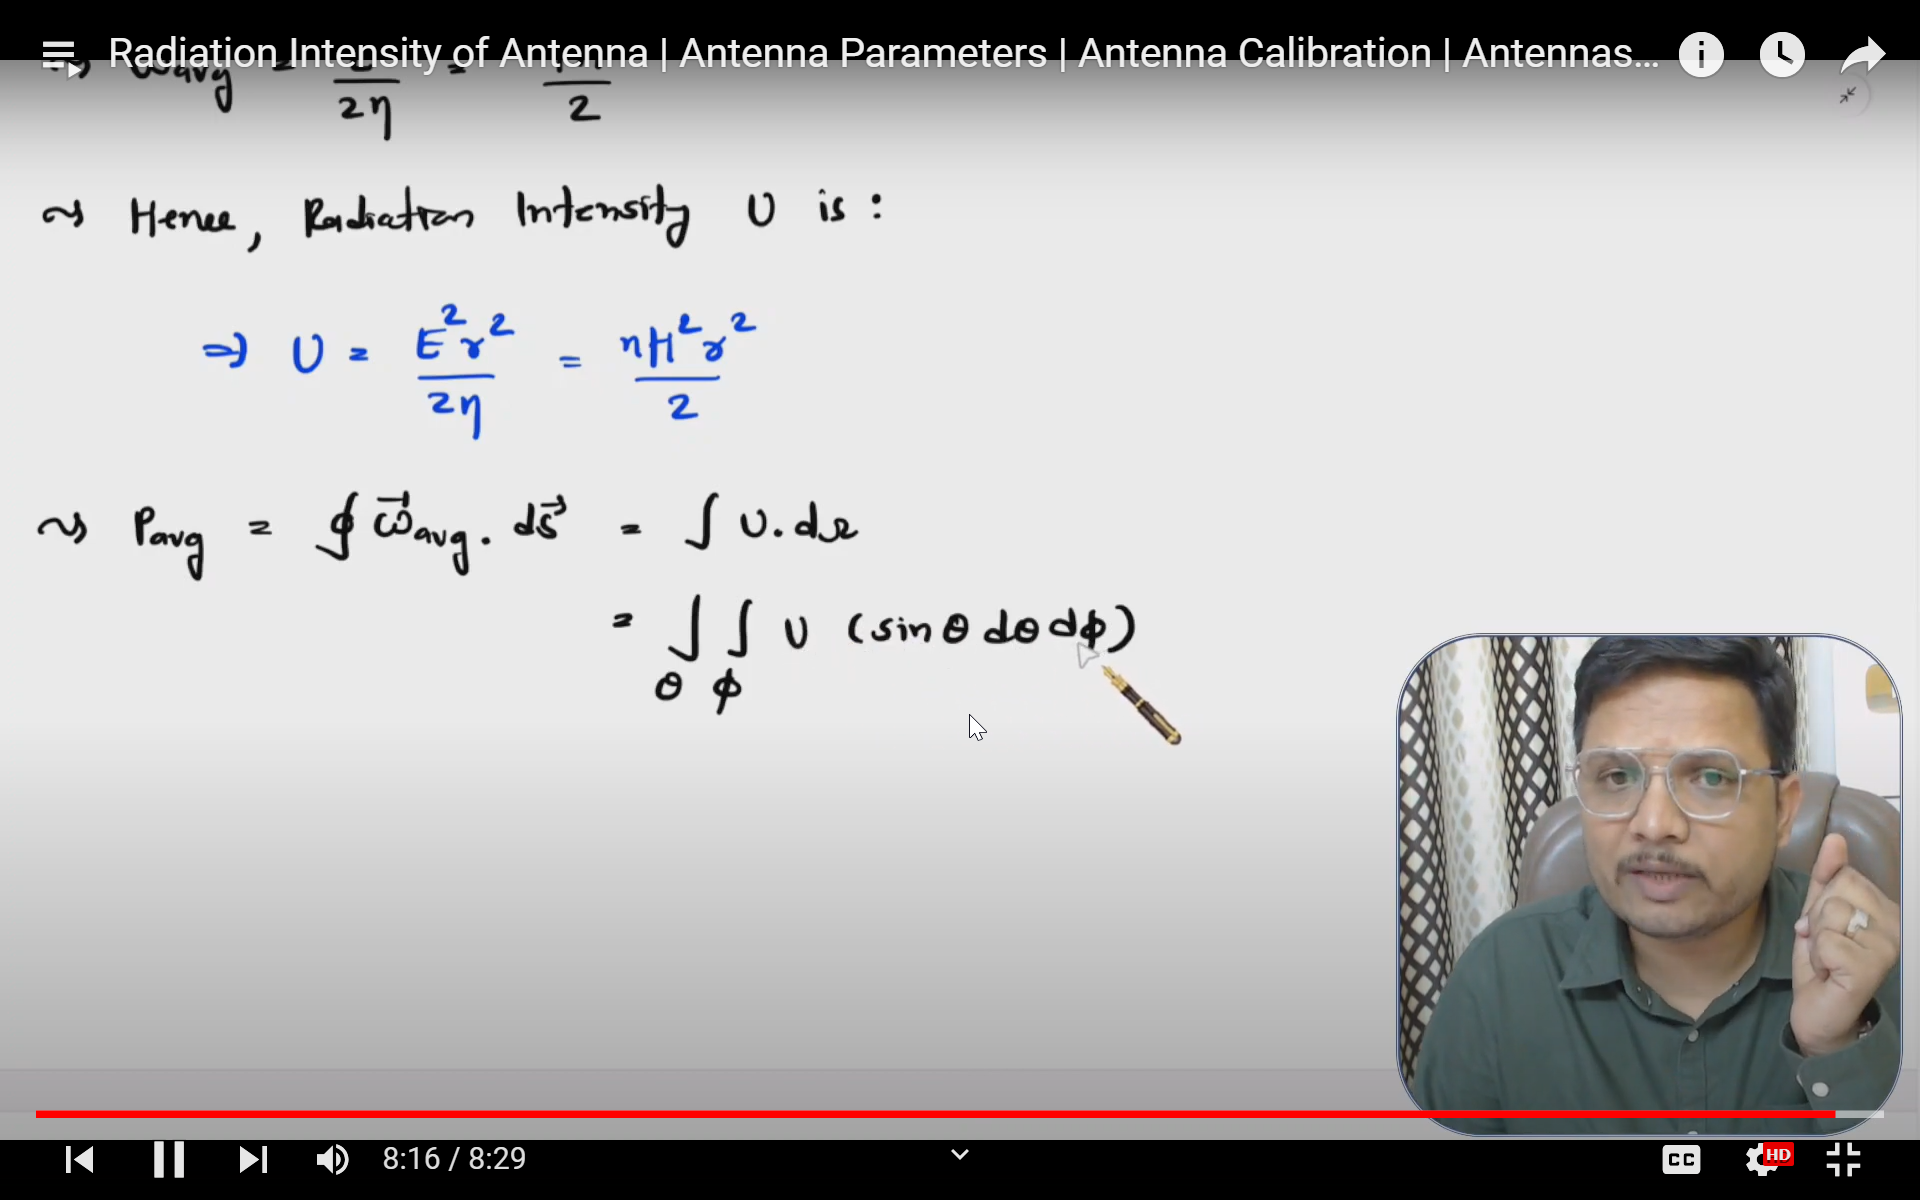 Radiation Intensity of Antenna | Antenna Parameters | Antenna Calibration | Antennas...
ωavg = /2η = /2
~> Hence, Radiation Intensity U is :
=> U = E²r²/2η = ηH²r²/2
~> Pavg = ∮ ω⃗avg . ds⃗ = ∫ U. dΩ
= ∫θ ∫ϕ U (sin θ dθ dϕ)
8:16 / 8:29
CC HD